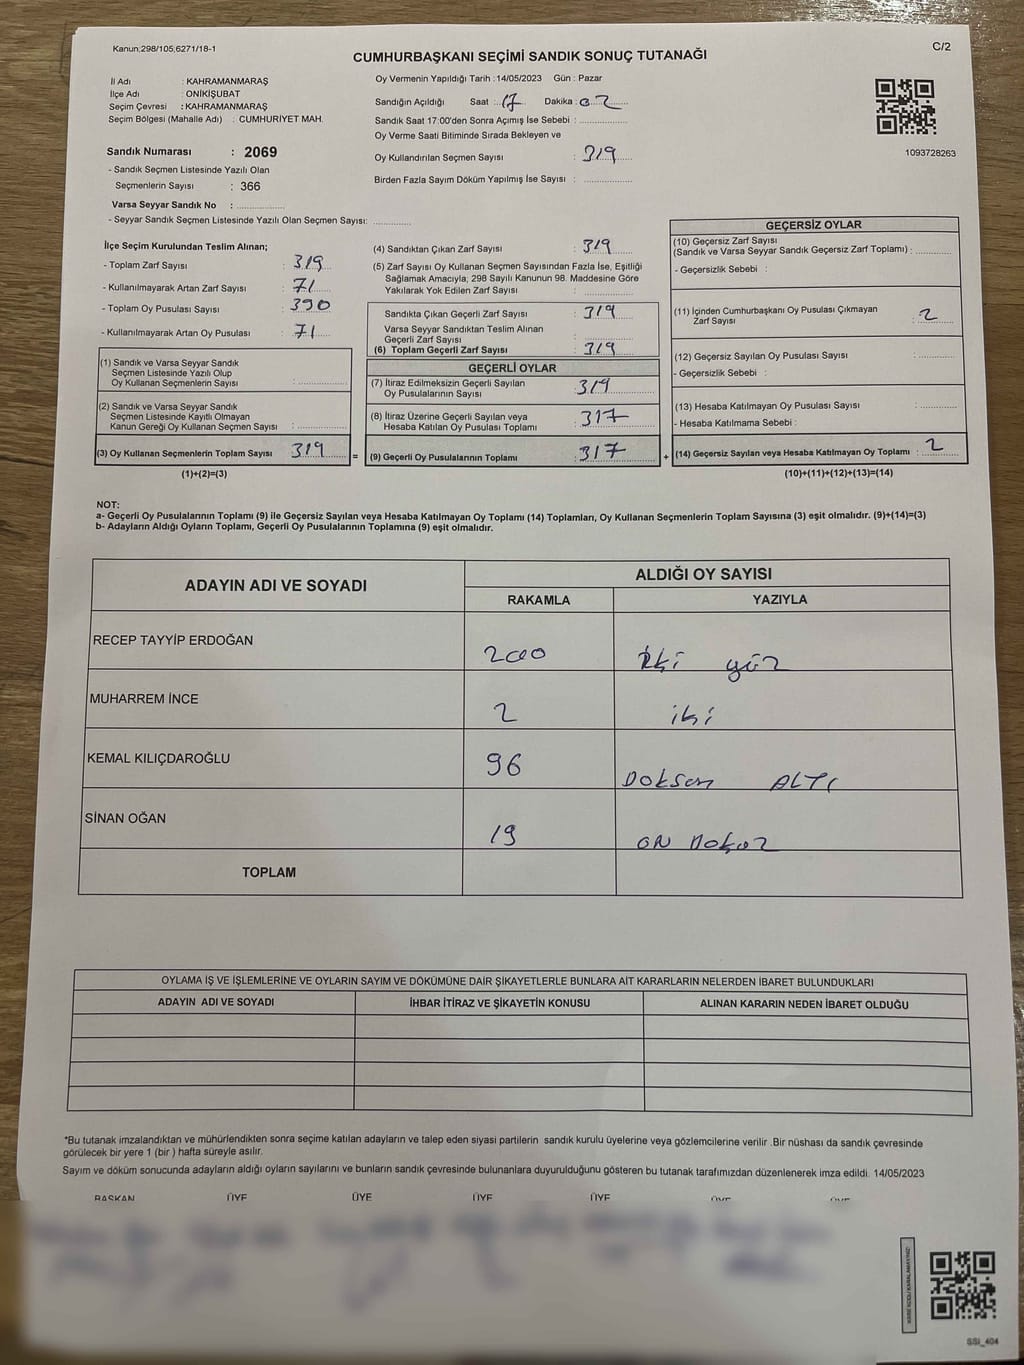 Kanun;298/105,6271/18-1
C/2
CUMHURBAŞKANI SEÇİMİ SANDIK SONUÇ TUTANAĞI
İl Adı : KAHRAMANMARAŞ
İlçe Adı : ONİKİŞUBAT
Seçim Çevresi : KAHRAMANMARAŞ
Seçim Bölgesi (Mahalle Adı) : CUMHURİYET MAH.
Oy Vermenin Yapıldığı Tarih :14/05/2023 Gün : Pazar
Sandığın Açıldığı Saat : 17 Dakika : 02
Sandık Saat 17:00'den Sonra Açımış İse Sebebi :
Oy Verme Saati Bitiminde Sırada Bekleyen ve
Oy Kullandırılan Seçmen Sayısı : 319
Birden Fazla Sayım Döküm Yapılmış İse Sayısı :
1093728263
Sandık Numarası : 2069
- Sandık Seçmen Listesinde Yazılı Olan
Seçmenlerin Sayısı : 366
Varsa Seyyar Sandık No :
- Seyyar Sandık Seçmen Listesinde Yazılı Olan Seçmen Sayısı:
İlçe Seçim Kurulundan Teslim Alınan;
- Toplam Zarf Sayısı : 319
- Kullanılmayarak Artan Zarf Sayısı : 71
- Toplam Oy Pusulası Sayısı : 390
- Kullanılmayarak Artan Oy Pusulası : 71
(1) Sandık ve Varsa Seyyar Sandık
Seçmen Listesinde Yazılı Olup
Oy Kullanan Seçmenlerin Sayısı :
(2) Sandık ve Varsa Seyyar Sandık
Seçmen Listesinde Kayıtlı Olmayan
Kanun Gereği Oy Kullanan Seçmen Sayısı :
(3) Oy Kullanan Seçmenlerin Toplam Sayısı : 319
(1)+(2)=(3)
=
(4) Sandıktan Çıkan Zarf Sayısı : 319
(5) Zarf Sayısı Oy Kullanan Seçmen Sayısından Fazla İse, Eşitliği
Sağlamak Amacıyla; 298 Sayılı Kanunun 98. Maddesine Göre
Yakılarak Yok Edilen Zarf Sayısı :
Sandıkta Çıkan Geçerli Zarf Sayısı : 319
Varsa Seyyar Sandıktan Teslim Alınan
Geçerli Zarf Sayısı :
(6) Toplam Geçerli Zarf Sayısı : 319
GEÇERLİ OYLAR
(7) İtiraz Edilmeksizin Geçerli Sayılan
Oy Pusulalarının Sayısı : 319
(8) İtiraz Üzerine Geçerli Sayılan veya
Hesaba Katılan Oy Pusulası Toplamı : 317
(9) Geçerli Oy Pusulalarının Toplamı : 317
+
GEÇERSİZ OYLAR
(10) Geçersiz Zarf Sayısı
(Sandık ve Varsa Seyyar Sandık Geçersiz Zarf Toplamı) :
- Geçersizlik Sebebi :
(11) İçinden Cumhurbaşkanı Oy Pusulası Çıkmayan
Zarf Sayısı : 2
(12) Geçersiz Sayılan Oy Pusulası Sayısı :
- Geçersizlik Sebebi :
(13) Hesaba Katılmayan Oy Pusulası Sayısı :
- Hesaba Katılmama Sebebi :
(14) Geçersiz Sayılan veya Hesaba Katılmayan Oy Toplamı : 2
(10)+(11)+(12)+(13)=(14)
NOT:
a- Geçerli Oy Pusulalarının Toplamı (9) ile Geçersiz Sayılan veya Hesaba Katılmayan Oy Toplamı (14) Toplamları, Oy Kullanan Seçmenlerin Toplam Sayısına (3) eşit olmalıdır. (9)+(14)=(3)
b- Adayların Aldığı Oyların Toplamı, Geçerli Oy Pusulalarının Toplamına (9) eşit olmalıdır.
ADAYIN ADI VE SOYADI
ALDIĞI OY SAYISI
RAKAMLA YAZIYLA
RECEP TAYYİP ERDOĞAN 200 iki yüz
MUHARREM İNCE 2 iki
KEMAL KILIÇDAROĞLU 96 DOKSAN ALTI
SİNAN OĞAN 19 ON DOKUZ
TOPLAM
OYLAMA İŞ VE İŞLEMLERİNE VE OYLARIN SAYIM VE DÖKÜMÜNE DAİR ŞİKAYETLERLE BUNLARA AİT KARARLARIN NELERDEN İBARET BULUNDUKLARI
ADAYIN ADI VE SOYADI İHBAR İTİRAZ VE ŞİKAYETİN KONUSU ALINAN KARARIN NEDEN İBARET OLDUĞU
*Bu tutanak imzalandıktan ve mühürlendikten sonra seçime katılan adayların ve talep eden siyasi partilerin sandık kurulu üyelerine veya gözlemcilerine verilir .Bir nüshası da sandık çevresinde
görülecek bir yere 1 (bir ) hafta süreyle asılır.
Sayım ve döküm sonucunda adayların aldığı oyların sayılarını ve bunların sandık çevresinde bulunanlara duyurulduğunu gösteren bu tutanak tarafımızdan düzenlenerek imza edildi. 14/05/2023
BAŞKAN ÜYE ÜYE ÜYE ÜYE ÜYE ÜYE
SSI_404